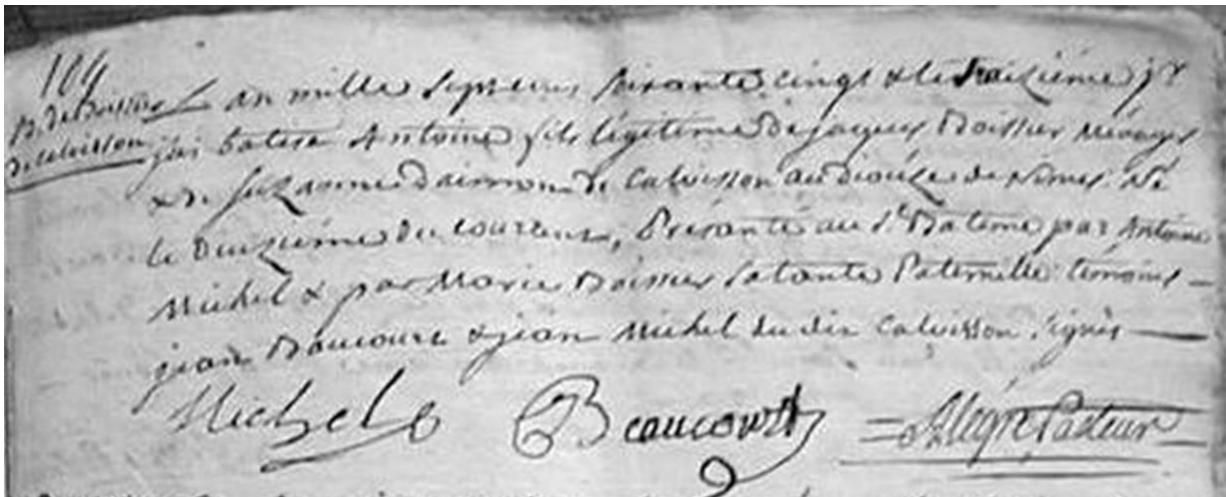 104
B. de Boissier
de Calvisson
L an mille Sept cens soixante cinqt & le traizième jr
jai batisé Antoine fils légitime de jaques Boissier ménager
& de Suzanne dairmon de Calvisson au diouèze de Nimes Né
le deuzième du courant, Présanté au St Batème par Antoine
Michel & par Marie Boissier Sa tante Paternelle témoins
jean Baucourt & jean Michel du dit Calvisson Signés
Michel Beaucourt Alègre Pasteur